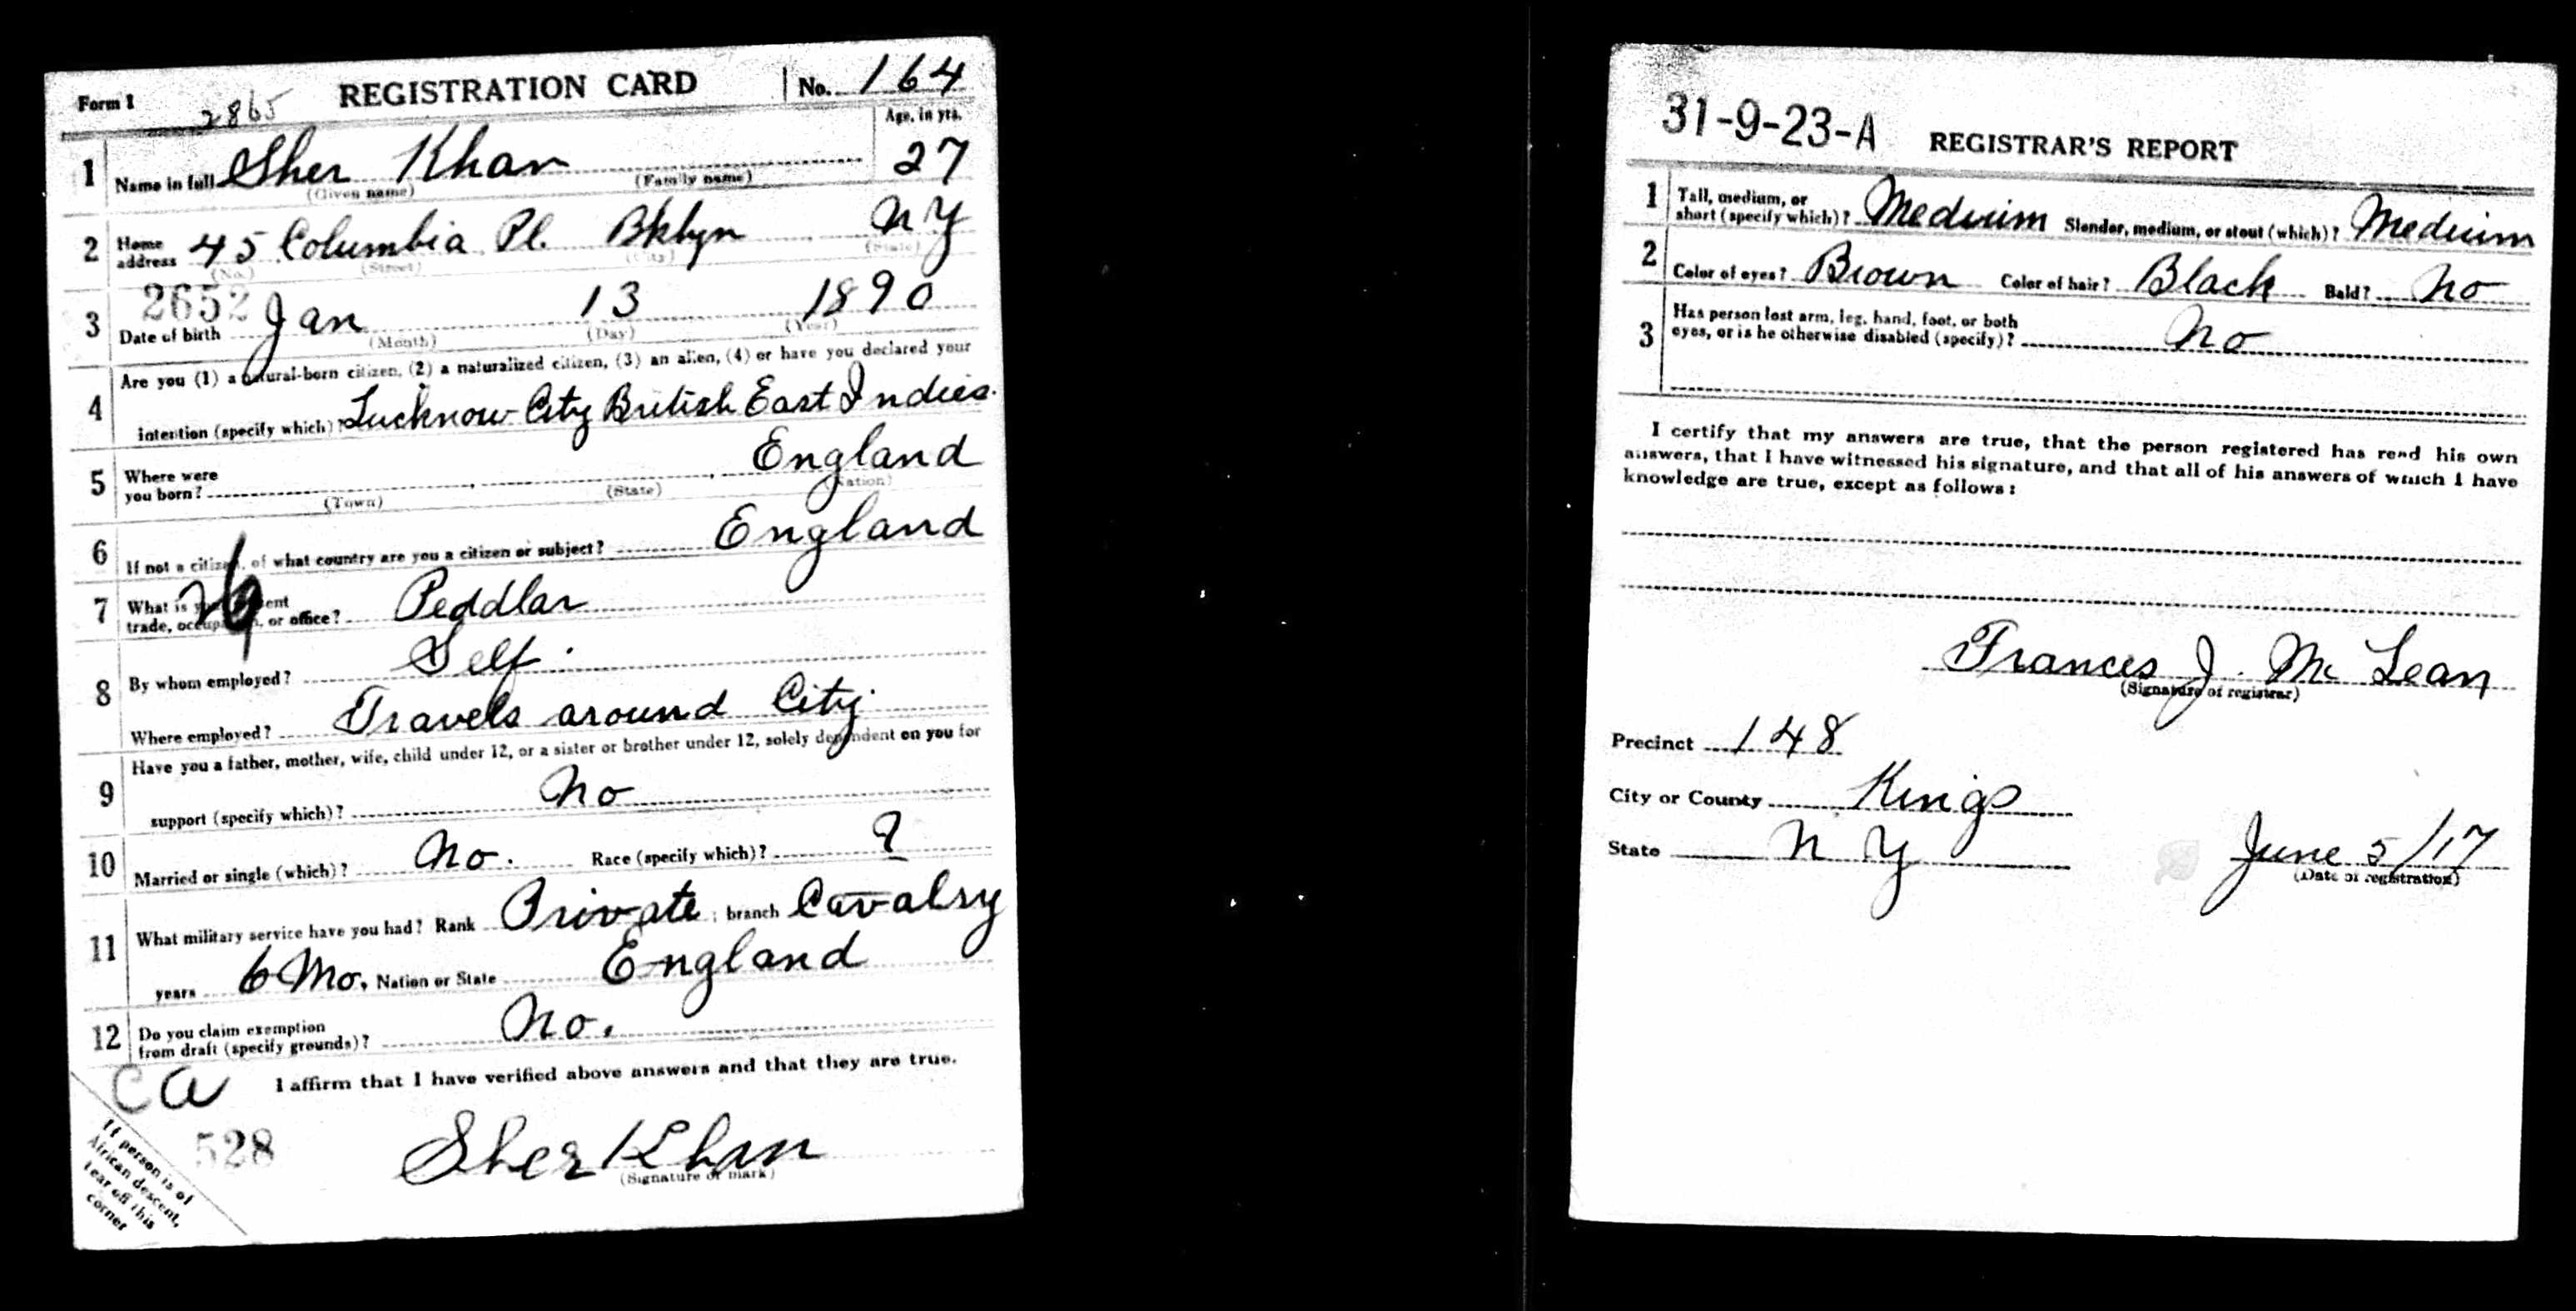 Form 1 2865 REGISTRATION CARD No. 164
Age, in yrs.
1 Name in full Sher Khan 27
(Given name) (Family name)
2 Home address 45 Columbia Pl. Bklyn N Y
(No.) (Street) (City) (State)
2652
3 Date of birth Jan 13 1890
(Month) (Day) (Year)
4 Are you (1) a natural-born citizen, (2) a naturalized citizen, (3) an alien, (4) or have you declared your
intention (specify which)? Lucknow City British East Indies.
5 Where were you born? England
(Town) (State) (Nation)
6 If not a citizen, of what country are you a citizen or subject? England
7 What is your present trade, occupation, or office? Peddlar
8 By whom employed? Self.
Where employed? Travels around City
9 Have you a father, mother, wife, child under 12, or a sister or brother under 12, solely dependent on you for
support (specify which)? No
10 Married or single (which)? No. Race (specify which)? ?
11 What military service have you had? Rank Private ; branch Cavalry
years 6 Mo. Nation or State England
12 Do you claim exemption
from draft (specify grounds)? No.
Ca I affirm that I have verified above answers and that they are true.
528
Sher Khan
(Signature or mark)
If person is of
African descent,
tear off this
corner
31-9-23-A REGISTRAR'S REPORT
1 Tall, medium, or
short (specify which)? Medium Slender, medium, or stout (which)? Medium
2 Color of eyes? Brown Color of hair? Black Bald? No
3 Has person lost arm, leg, hand, foot, or both
eyes, or is he otherwise disabled (specify)? No
I certify that my answers are true, that the person registered has read his own
answers, that I have witnessed his signature, and that all of his answers of which I have
knowledge are true, except as follows:
Frances J. Mc Lean
(Signature of registrar)
Precinct 148
City or County Kings
State N Y June 5/17
(Date of registration)